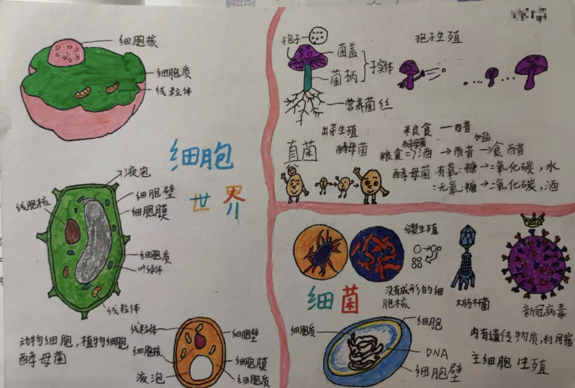 细胞核
细胞质
线粒体
细胞
世界
液泡
细胞壁
细胞膜
线胞核
细胞质
叶绿体
线粒体
动物细胞,植物细胞
酵母菌
线粒体
细胞核
液泡
细胞壁
细胞膜
细胞质
孢子
菌盖
菌柄
子实体
营养菌丝
孢子生殖
真菌
出芽生殖
酵母菌
米食 一 醋
酵母菌
粮食=>酒→质醋→食醋
酵母菌:有氧:糖→二氧化碳,水
:无氧:糖→二氧化碳,酒
细菌
分裂生殖
没有成形的细
胞核
大肠杆菌
新冠病毒
细胞质
细胞
DNA
细胞壁
内有遗传物质,利用宿
主细胞生殖